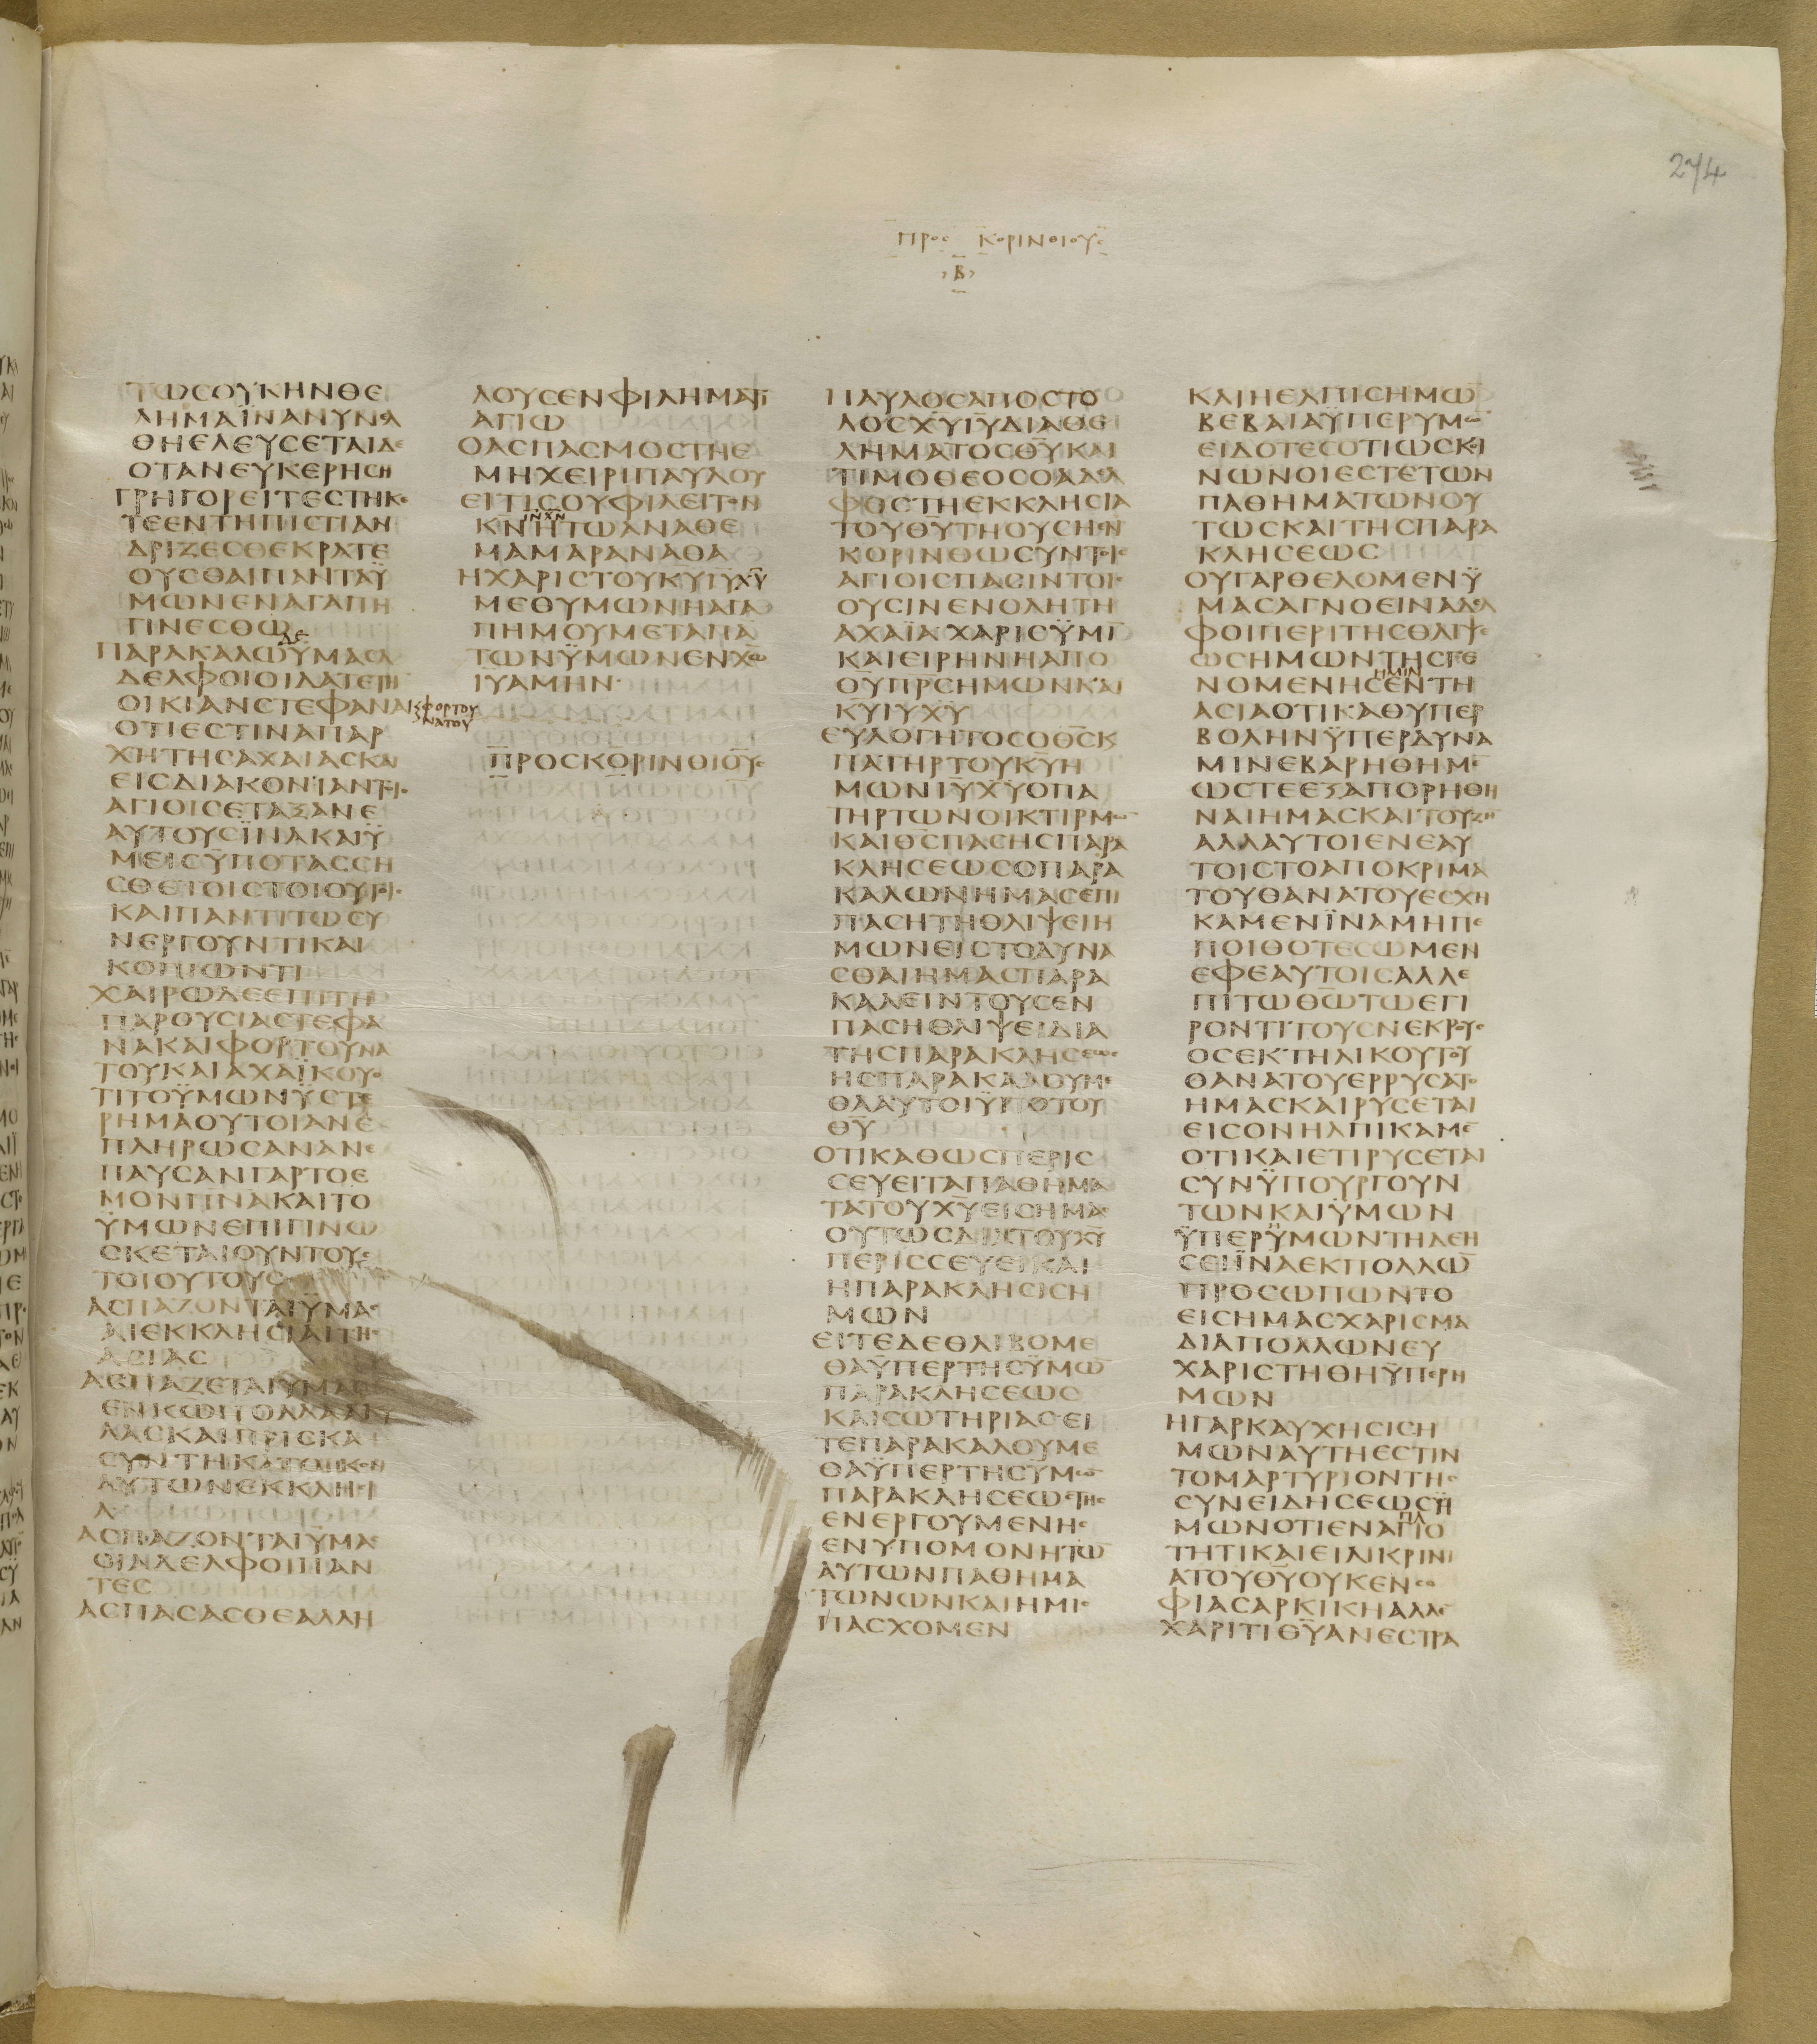 274
ΠΡΟϹ ΚΟΡΙΝΘΙΟΥϹ
Β
ΤΩϹΟΥΚΗΝΘΕ
ΛΗΜΑΪΝΑΝΥΝΕΛ
ΘΗΕΛΕΥϹΕΤΑΙΔΕ
ΟΤΑΝΕΥΚΕΡΗϹΗ
ΓΡΗΓΟΡΕΙΤΕϹΤΗΚΕ
ΤΕΕΝΤΗΠΙϹΤΙΑΝ
ΔΡΙΖΕϹΘΕΚΡΑΤΕ
ΟΥϹΘΑΙΠΑΝΤΑΫ
ΜΩΝΕΝΑΓΑΠΗ
ΓΙΝΕϹΘΩ
ΔΕ
ΠΑΡΑΚΑΛΩΫΜΑϹΑ
ΔΕΛΦΟΙΟΙΔΑΤΕΤΗ
ΟΙΚΙΑΝϹΤΕΦΑΝΑ
ΙϚΦΟΡΤΟΥ
ΝΑΤΟΥ
ΟΤΙΕϹΤΙΝΑΠΑΡ
ΧΗΤΗϹΑΧΑΙΑϹΚΑΙ
ΕΙϹΔΙΑΚΟΝΙΑΝΤΟΙϹ
ΑΓΙΟΙϹΕΤΑΞΑΝΕ
ΑΥΤΟΥϹΪΝΑΚΑΙΫ
ΜΕΙϹΫΠΟΤΑϹϹΗ
ϹΘΕΤΟΙϹΤΟΙΟΥΤΟΙϹ
ΚΑΙΠΑΝΤΙΤΩϹΥ
ΝΕΡΓΟΥΝΤΙΚΑΙ
ΚΟΠΙΩΝΤΙ
ΧΑΙΡΩΔΕΕΠΙΤΗ
ΠΑΡΟΥϹΙΑϹΤΕΦΑ
ΝΑΚΑΙΦΟΡΤΟΥΝΑ
ΤΟΥΚΑΙΑΧΑΪΚΟΥΟ
ΤΙΤΟΫΜΩΝΫϹΤΕ
ΡΗΜΑΟΥΤΟΙΑΝΕ
ΠΛΗΡΩϹΑΝΑΝΕ
ΠΑΥϹΑΝΓΑΡΤΟΕ
ΜΟΝΠΝΑΚΑΙΤΟ
ΫΜΩΝΕΠΙΓΙΝΩ
ϹΚΕΤΑΙΟΥΝΤΟΥϹ
ΤΟΙΟΥΤΟΥϹ
ΑϹΠΑΖΟΝΤΑΙΫΜΑϹ
ΑΙΕΚΚΛΗϹΙΑΙΤΗϹ
ΑϹΙΑϹ
ΑϹΠΑΖΕΤΑΙΫΜΑϹ
ΕΝΚΩΠΟΛΛΑΑΚΥ
ΛΑϹΚΑΙΠΡΙϹΚΑ
ϹΥΝΤΗΚΑΤΟΙΚΟΝ
ΑΥΤΩΝΕΚΚΛΗϹΙ
Α
ΑϹΠΑΖΟΝΤΑΙΫΜΑϹ
ΟΙΑΔΕΛΦΟΙΠΑΝ
ΤΕϹ
ΑϹΠΑϹΑϹΘΕΑΛΛΗ
ΛΟΥϹΕΝΦΙΛΗΜΑΤΙ
ΑΓΙΩ
ΟΑϹΠΑϹΜΟϹΤΗΕ
ΜΗΧΕΙΡΙΠΑΥΛΟΥ
ΕΙΤΙϹΟΥΦΙΛΕΙΤΟΝ
ΙΝΧΝ
ΚΝΗΤΩΑΝΑΘΕ
ΜΑΜΑΡΑΝΑΘΑ
ΗΧΑΡΙϹΤΟΥΚΥΙΥΧΥ
ΜΕΘΥΜΩΝΗΑΓΑ
ΠΗΜΟΥΜΕΤΑΠΑ
ΤΩΝΫΜΩΝΕΝΧΩ
ΙΥΑΜΗΝ
ΠΡΟϹΚΟΡΙΝΘΙΟΥϹ
ΠΑΥΛΟϹΑΠΟϹΤΟ
ΛΟϹΧΥΙΥΔΙΑΘΕ
ΛΗΜΑΤΟϹΘΥΚΑΙ
ΤΙΜΟΘΕΟϹΟΑΔΕΛ
ΦΟϹΤΗΕΚΚΛΗϹΙΑ
ΤΟΥΘΥΤΗΟΥϹΗΕΝ
ΚΟΡΙΝΘΩϹΥΝΤΟΙϹ
ΑΓΙΟΙϹΠΑϹΙΝΤΟΙϹ
ΟΥϹΙΝΕΝΟΛΗΤΗ
ΑΧΑΪΑΧΑΡΙϹΫΜΙ
ΚΑΙΕΙΡΗΝΗΑΠΟ
ΘΥΠΡϹΗΜΩΝΚΑΙ
ΚΥΙΥΧΥ
ΕΥΛΟΓΗΤΟϹΟΘϹΚ
ΠΑΤΗΡΤΟΥΚΥΗ
ΜΩΝΙΥΧΥΟΠΑ
ΤΗΡΤΩΝΟΙΚΤΙΡΜΩ
ΚΑΙΘϹΠΑϹΗϹΠΑΡΑ
ΚΛΗϹΕΩϹΟΠΑΡΑ
ΚΑΛΩΝΗΜΑϹΕΠΙ
ΠΑϹΗΤΗΘΛΙΨΕΙΗ
ΜΩΝΕΙϹΤΟΔΥΝΑ
ϹΘΑΙΗΜΑϹΠΑΡΑ
ΚΑΛΕΙΝΤΟΥϹΕΝ
ΠΑϹΗΘΛΙΨΕΙΔΙΑ
ΤΗϹΠΑΡΑΚΛΗϹΕΩϹ
ΗϹΠΑΡΑΚΑΛΟΥΜΕ
ΘΑΑΥΤΟΙΫΠΟΤΟΥ
ΘΥ
ΟΤΙΚΑΘΩϹΠΕΡΙϹ
ϹΕΥΕΙΤΑΠΑΘΗΜΑ
ΤΑΤΟΥΧΥΕΙϹΗΜΑϹ
ΟΥΤΩϹΔΙΑΤΟΥΧΥ
ΠΕΡΙϹϹΕΥΕΙΚΑΙ
ΗΠΑΡΑΚΛΗϹΙϹΗ
ΜΩΝ
ΕΙΤΕΔΕΘΛΙΒΟΜΕ
ΘΑΫΠΕΡΤΗϹΫΜΩ
ΠΑΡΑΚΛΗϹΕΩϹ
ΚΑΙϹΩΤΗΡΙΑϹΕΙ
ΤΕΠΑΡΑΚΑΛΟΥΜΕ
ΘΑΫΠΕΡΤΗϹΫΜΩ
ΠΑΡΑΚΛΗϹΕΩϹΤΗϹ
ΕΝΕΡΓΟΥΜΕΝΗϹ
ΕΝΥΠΟΜΟΝΗΤΩ
ΑΥΤΩΝΠΑΘΗΜΑ
ΤΩΝΩΝΚΑΙΗΜΙϹ
ΠΑϹΧΟΜΕΝ
ΚΑΙΗΕΛΠΙϹΗΜΩ
ΒΕΒΑΙΑΫΠΕΡΥΜΩ
ΕΙΔΟΤΕϹΟΤΙΩϹΚΟΙ
ΝΩΝΟΙΕϹΤΕΤΩΝ
ΠΑΘΗΜΑΤΩΝΟΥ
ΤΩϹΚΑΙΤΗϹΠΑΡΑ
ΚΛΗϹΕΩϹ
ΟΥΓΑΡΘΕΛΟΜΕΝΫ
ΜΑϹΑΓΝΟΕΙΝΑΔΕΛ
ΦΟΙΠΕΡΙΤΗϹΘΛΙΨΕ
ΩϹΗΜΩΝΤΗϹΓΕ
ΗΜΙΝ
ΝΟΜΕΝΗϹΕΝΤΗ
ΑϹΙΑΟΤΙΚΑΘΥΠΕΡ
ΒΟΛΗΝΫΠΕΡΔΥΝΑ
ΜΙΝΕΒΑΡΗΘΗΜΕ
ΩϹΤΕΕΞΑΠΟΡΗΘΗ
ΝΑΙΗΜΑϹΚΑΙΤΟΥΖΗ
ΑΛΛΑΥΤΟΙΕΝΕΑΥ
ΤΟΙϹΤΟΑΠΟΚΡΙΜΑ
ΤΟΥΘΑΝΑΤΟΥΕϹΧΗ
ΚΑΜΕΝΪΝΑΜΗΠΕ
ΠΟΙΘΟΤΕϹΩΜΕΝ
ΕΦΕΑΥΤΟΙϹΑΛΛΕ
ΠΙΤΩΘΩΤΩΕΓΙ
ΡΟΝΤΙΤΟΥϹΝΕΚΡΟΥϹ
ΟϹΕΚΤΗΛΙΚΟΥΤΟΥ
ΘΑΝΑΤΟΥΕΡΡΥϹΑΤΟ
ΗΜΑϹΚΑΙΡΥϹΕΤΑΙ
ΕΙϹΟΝΗΛΠΙΚΑΜΕ
ΟΤΙΚΑΙΕΤΙΡΥϹΕΤΑΙ
ϹΥΝΫΠΟΥΡΓΟΥΝ
ΤΩΝΚΑΙΫΜΩΝ
ΫΠΕΡΫΜΩΝΤΗΔΕΗ
ϹΕΙΪΝΑΕΚΠΟΛΛΩ
ΠΡΟϹΩΠΩΝΤΟ
ΕΙϹΗΜΑϹΧΑΡΙϹΜΑ
ΔΙΑΠΟΛΛΩΝΕΥ
ΧΑΡΙϹΤΗΘΗΫΠΕΡΗ
ΜΩΝ
ΗΓΑΡΚΑΥΧΗϹΙϹΗ
ΜΩΝΑΥΤΗΕϹΤΙΝ
ΤΟΜΑΡΤΥΡΙΟΝΤΗϹ
ϹΥΝΕΙΔΗϹΕΩϹΗ
ΠΛ
ΜΩΝΟΤΙΕΝΑΓΙΟ
ΤΗΤΙΚΑΙΕΙΛΙΚΡΙΝΙ
ΑΤΟΥΘΥΟΥΚΕΝϹΟ
ΦΙΑϹΑΡΚΙΚΗΑΛΛΕ
ΧΑΡΙΤΙΘΥΑΝΕϹΤΡΑ